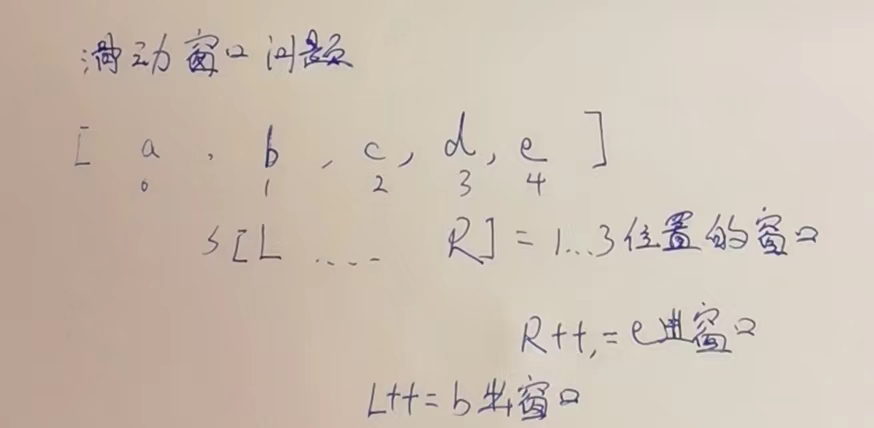 滑动窗口问题
[ a , b , c , d , e ]
0 1 2 3 4
s[L .... R] = 1...3位置的窗口
R++, = e进窗口
L++ = b出窗口